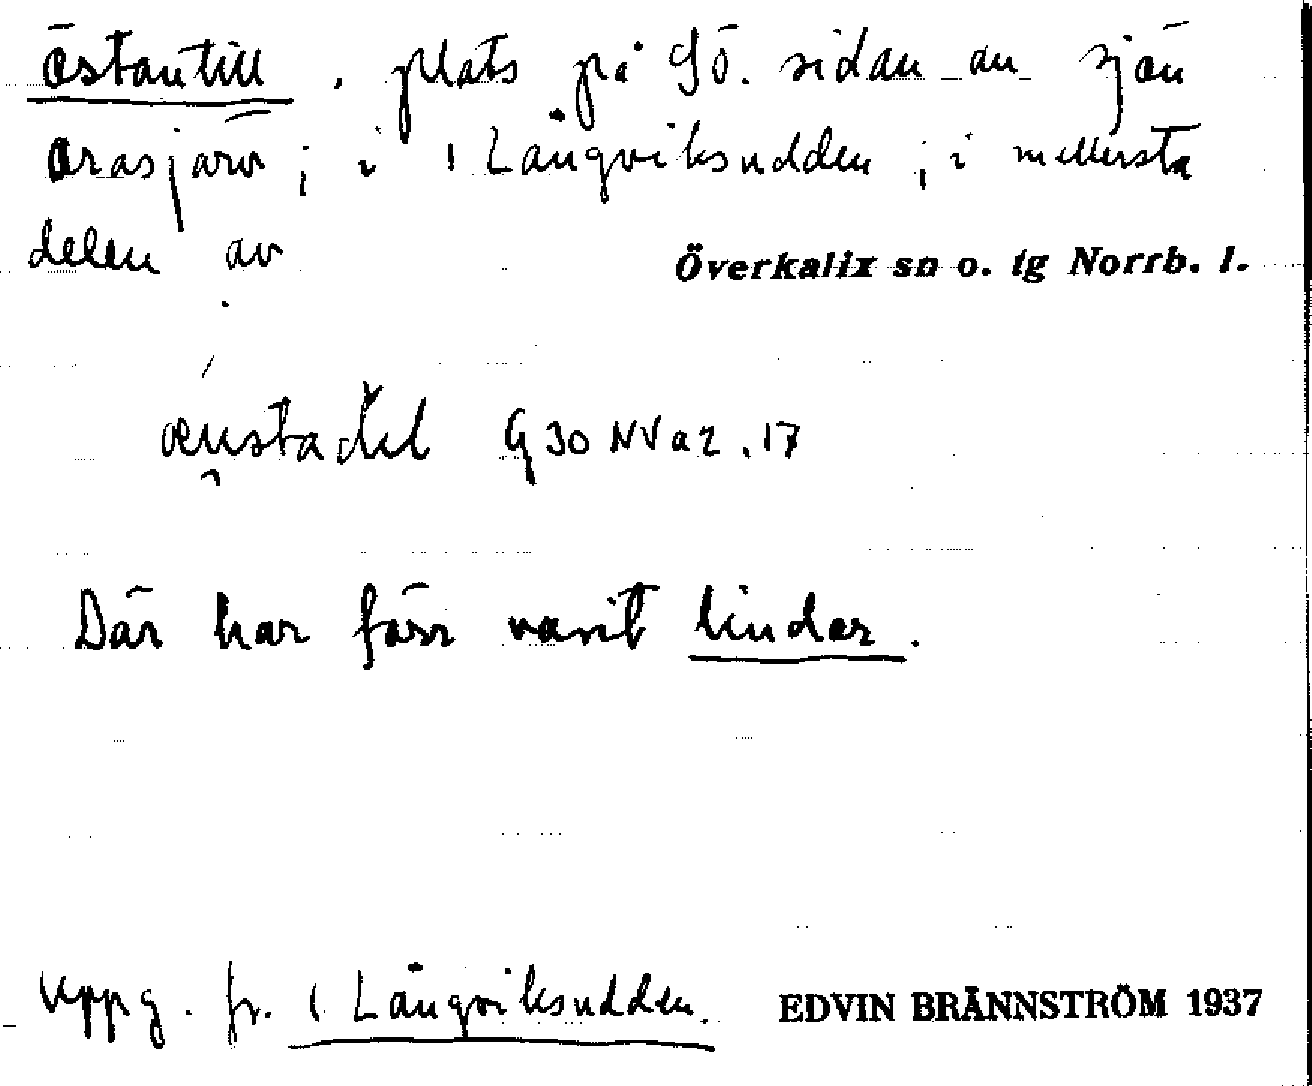 östantill, plats på Sö. sidan av sjön
Orasjärv; i 1 Långviksudden; i mellersta
delen av
Överkalix sn o. tg Norrb. l.
G 30 NV a 2. 17
Där har förr varit lindor.
Uppg. fr. 1 Långviksudden. EDVIN BRÄNNSTRÖM 1937